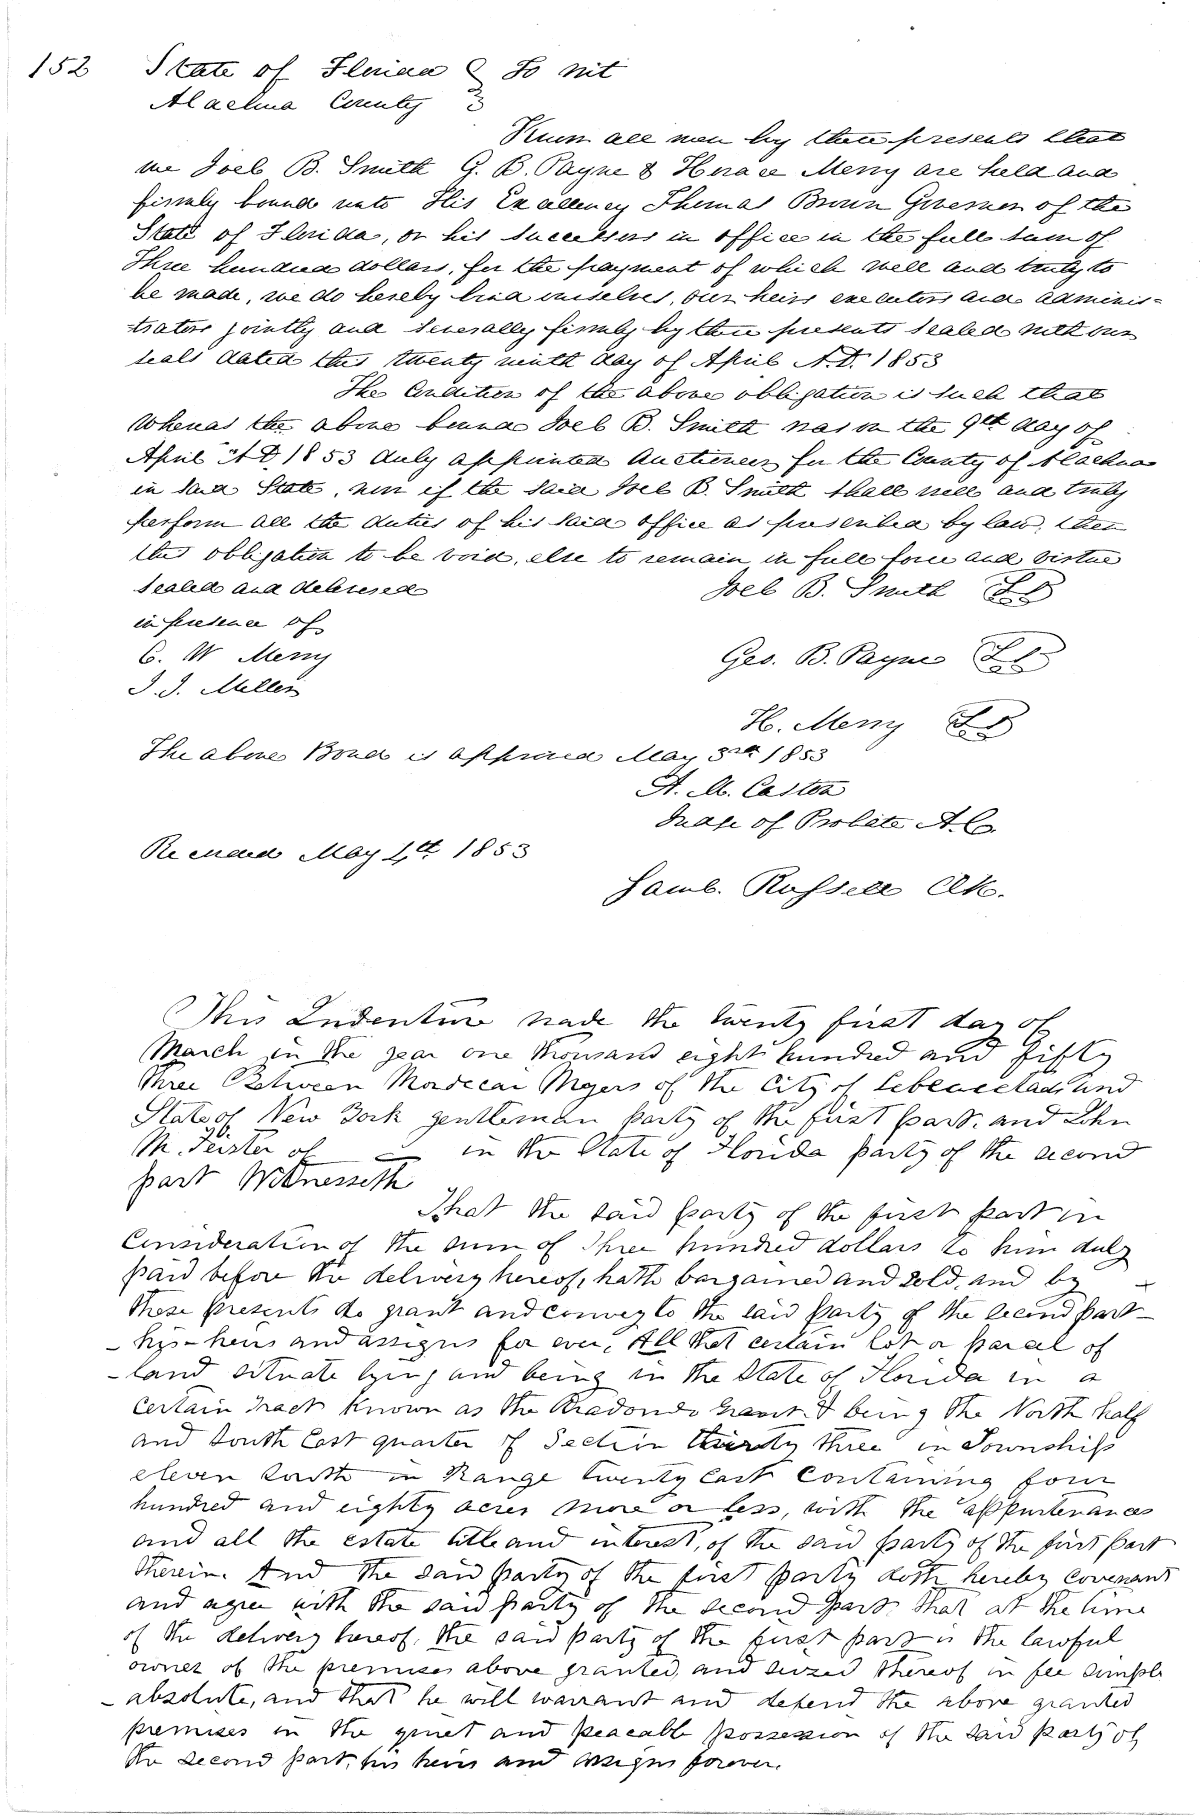 152 State of Florida } To wit
Alachua County }
Know all men by these presents that
we Joel B. Smith G. B. Payne & Horace Merry are held and
firmly bound unto His Excellency Thomas Brown Governor of the
State of Florida, or his successors in office in the full sum of
Three hundred dollars, for the payment of which well and truly to
be made, we do hereby bind ourselves, our heirs executors and adminis=
trators jointly and severally firmly by these presents sealed with our
seals dated this twenty ninth day of April A.D. 1853
The Condition of the above obligation is such that
Whereas the above bound Joel B. Smith was on the 9th day of
April A D. 1853 duly appointed Auctioneer for the County of Alachua
in said State, now if the said Joel B. Smith shall well and truly
perform all the duties of his said office as prescribed by law, then
this obligation to be void, else to remain in full force and virtue
Sealed and delivered Joel B. Smith LS
in presence of
C. W Merry Geo. B. Payne LS
J. J. Miller
H. Merry LS
The above Bond is approved May 3rd 1853
A. M. Caston
Judge of Probate A.C.
Recorded May 4th 1853
Saml. Russell Clk.
This Indenture made the twenty first day of
March in the year one thousand eight hundred and fifty
three Between Mordecai Myers of the City of and
State of New York gentleman party of the first part, and John
M. Feister of — in the State of Florida party of the second
part Witnesseth
That the said party of the first part in
Consideration of the sum of Three hundred dollars to him duly
paid before the delivery hereof, hath bargained and sold, and by —
these presents do grant and convey to the said party of the second part —
– his – heirs and assigns for ever, All that certain lot or parcel of
– land situate lying and being in the State of Florida in a
certain Tract known as the Arredondo Grant & being the North half
and South East quarter of Section thirty three in Township
eleven South in Range twenty East Containing four
hundred and eighty acres more or less, with the appurtenances
and all the estate title and interest, of the said party of the first part
therein. And the said party of the first party doth hereby covenant
and agree with the said party of the second part, that at the time
of the delivery hereof, the said party of the first part is the lawful
owner of the premises above granted, and seized thereof in fee simple
– absolute, and that he will warrant and defend the above granted
premises in the quiet and peacable possession of the said party of
the second part, his heirs and assigns forever.